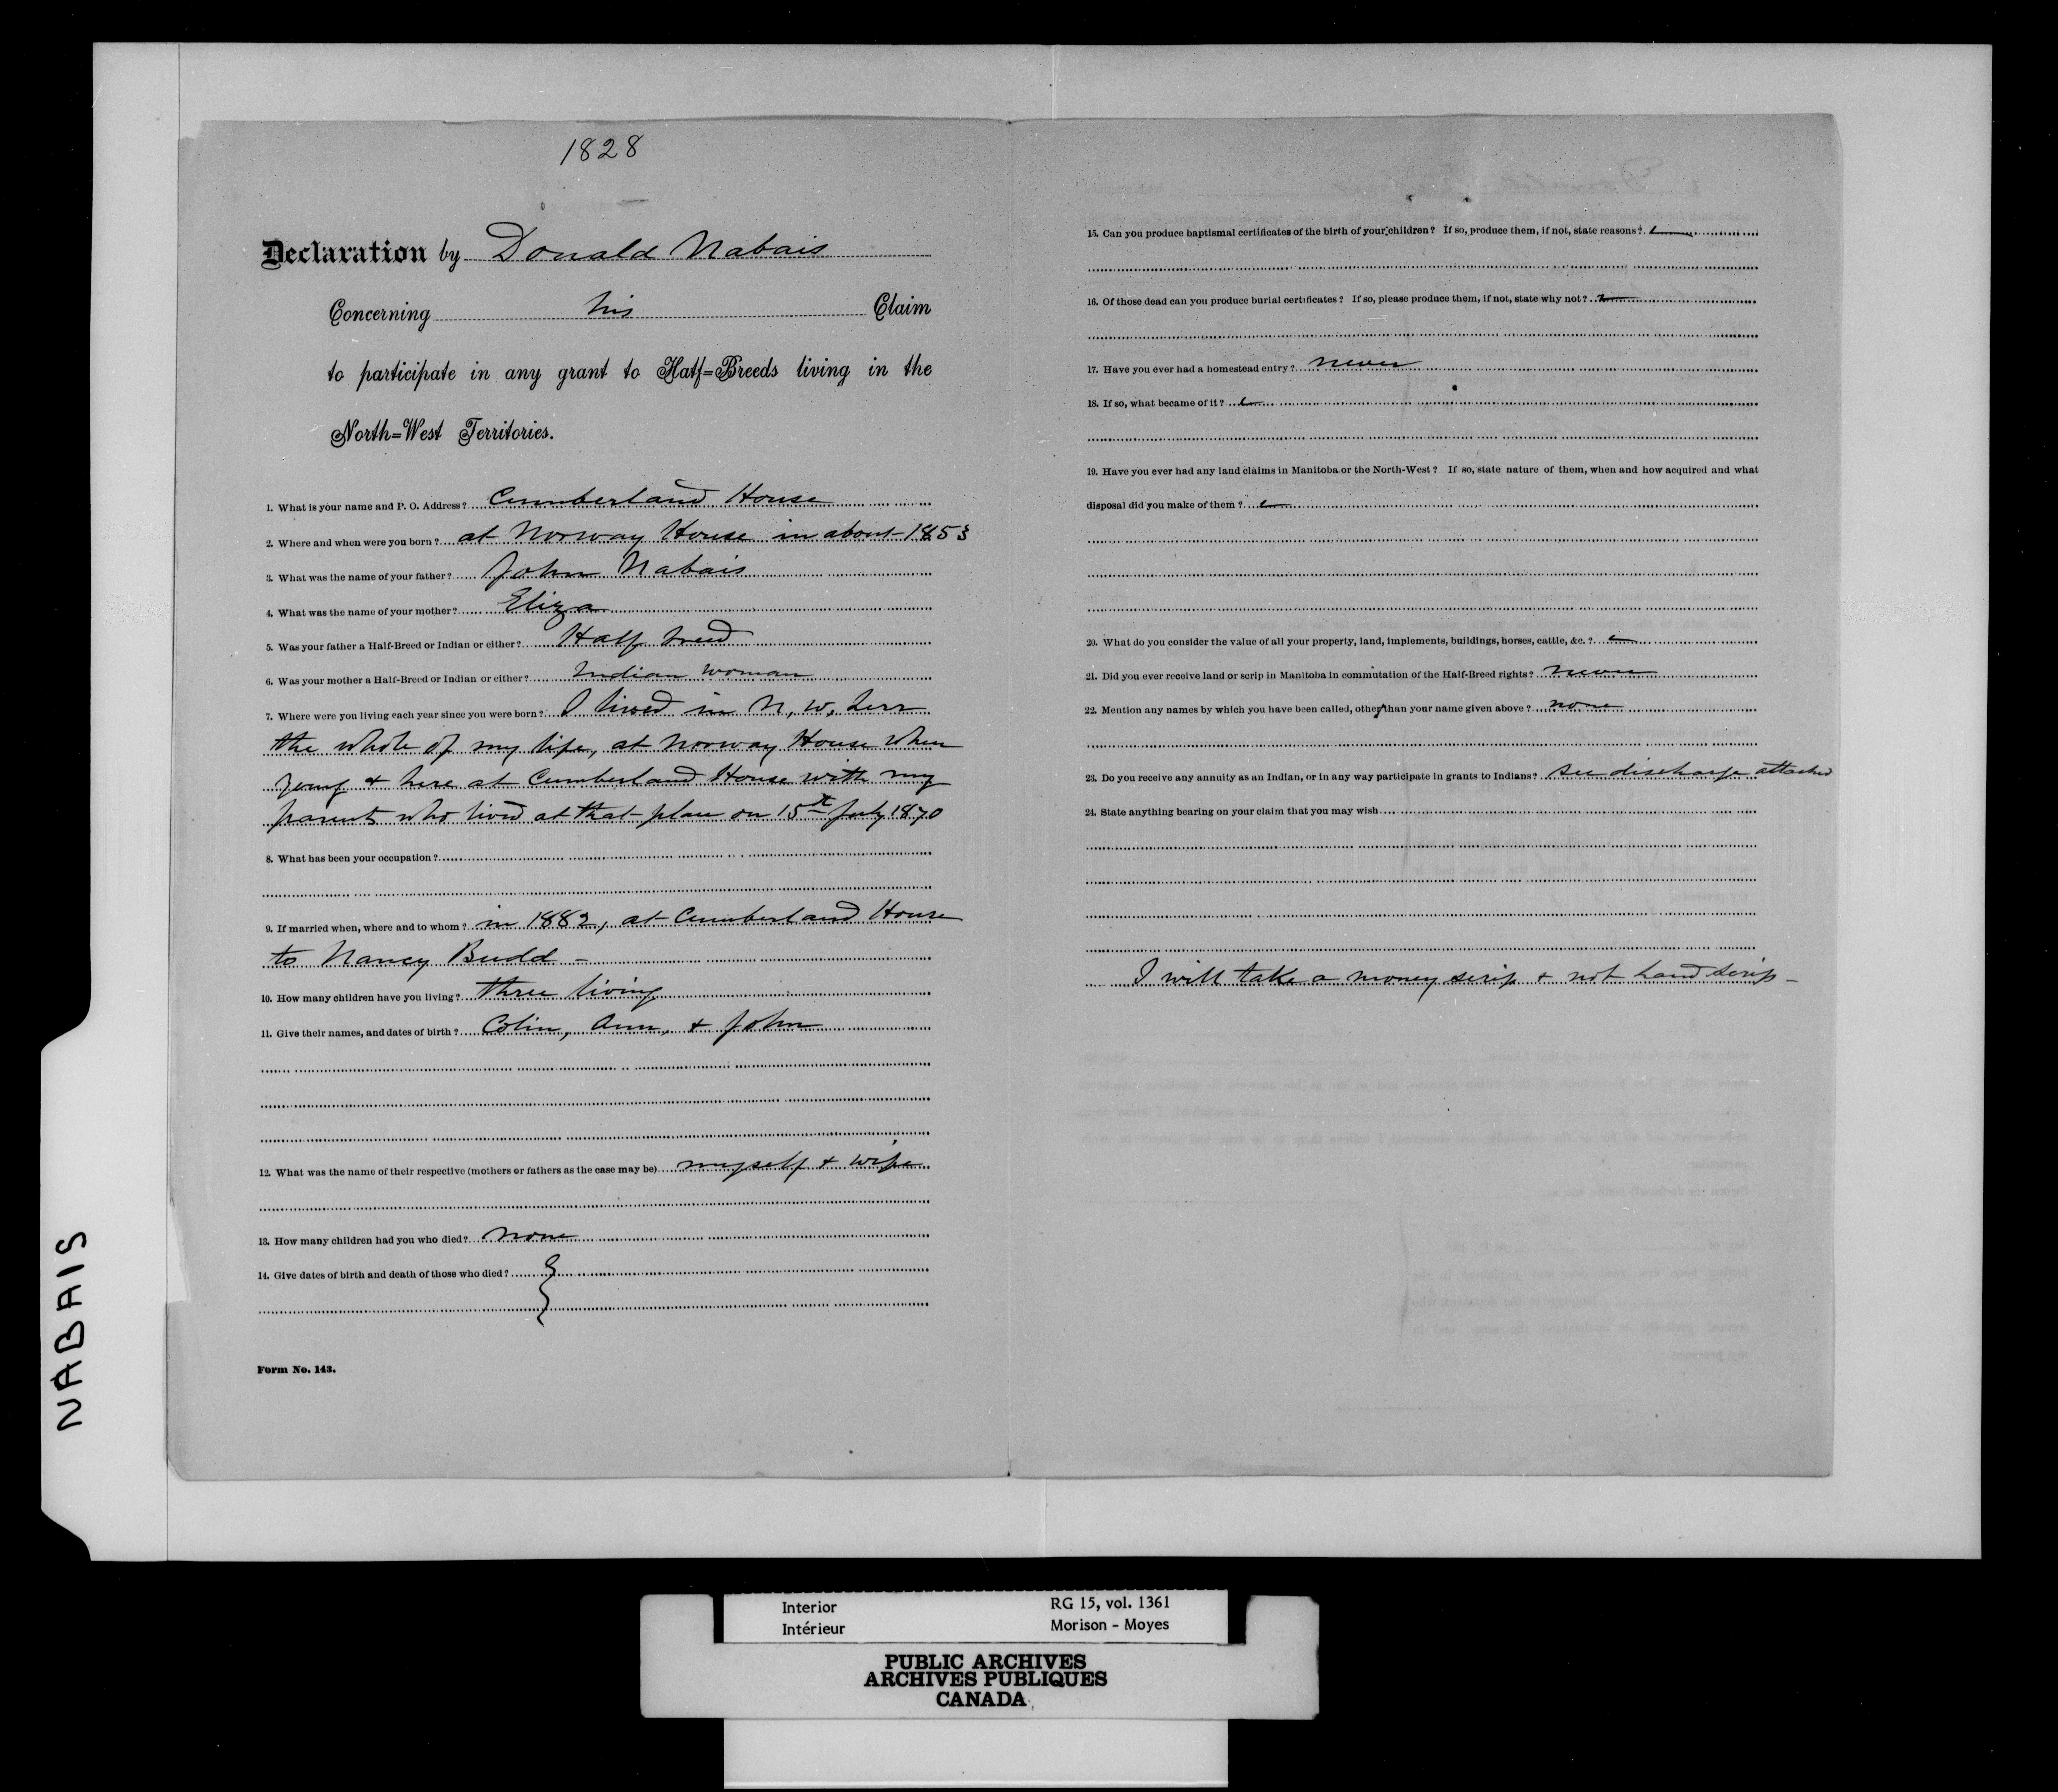 1828
Declaration by Donald Nabais
Concerning his Claim
to participate in any grant to Half=Breeds living in the
North=West Territories.
1. What is your name and P. O. Address? Cumberland House
2. Where and when were you born? at Norway House in about 1853
3. What was the name of your father? John Nabais
4. What was the name of your mother? Eliza
5. Was your father a Half-Breed or Indian or either? Half breed
6. Was your mother a Half-Breed or Indian or either? Indian woman
7. Where were you living each year since you were born? I lived in N. W. Terr
the whole of my life, at Norway House when
young & here at Cumberland House with my
parents who lived at that place on 15th July 1870
8. What has been your occupation?
9. If married when, where and to whom? in 1882, at Cumberland House
to Nancy Budd -
10. How many children have you living? three living
11. Give their names, and dates of birth? Colin, Ann, & John
12. What was the name of their respective (mothers or fathers as the case may be) myself & wife
13. How many children had you who died? none
14. Give dates of birth and death of those who died?
Form No. 143.
15. Can you produce baptismal certificates of the birth of your children? If so, produce them, if not, state reasons?
16. Of those dead can you produce burial certificates? If so, please produce them, if not, state why not?
17. Have you ever had a homestead entry? never
18. If so, what became of it?
19. Have you ever had any land claims in Manitoba or the North-West? If so, state nature of them, when and how acquired and what
disposal did you make of them?
20. What do you consider the value of all your property, land, implements, buildings, horses, cattle, &c.?
21. Did you ever receive land or scrip in Manitoba in commutation of the Half-Breed rights? never
22. Mention any names by which you have been called, other than your name given above? none
23. Do you receive any annuity as an Indian, or in any way participate in grants to Indians? see discharge attached
24. State anything bearing on your claim that you may wish
I will take a money scrip & not land scrip -
NABAIS
Interior RG 15, vol. 1361
Intérieur Morison - Moyes
PUBLIC ARCHIVES
ARCHIVES PUBLIQUES
CANADA